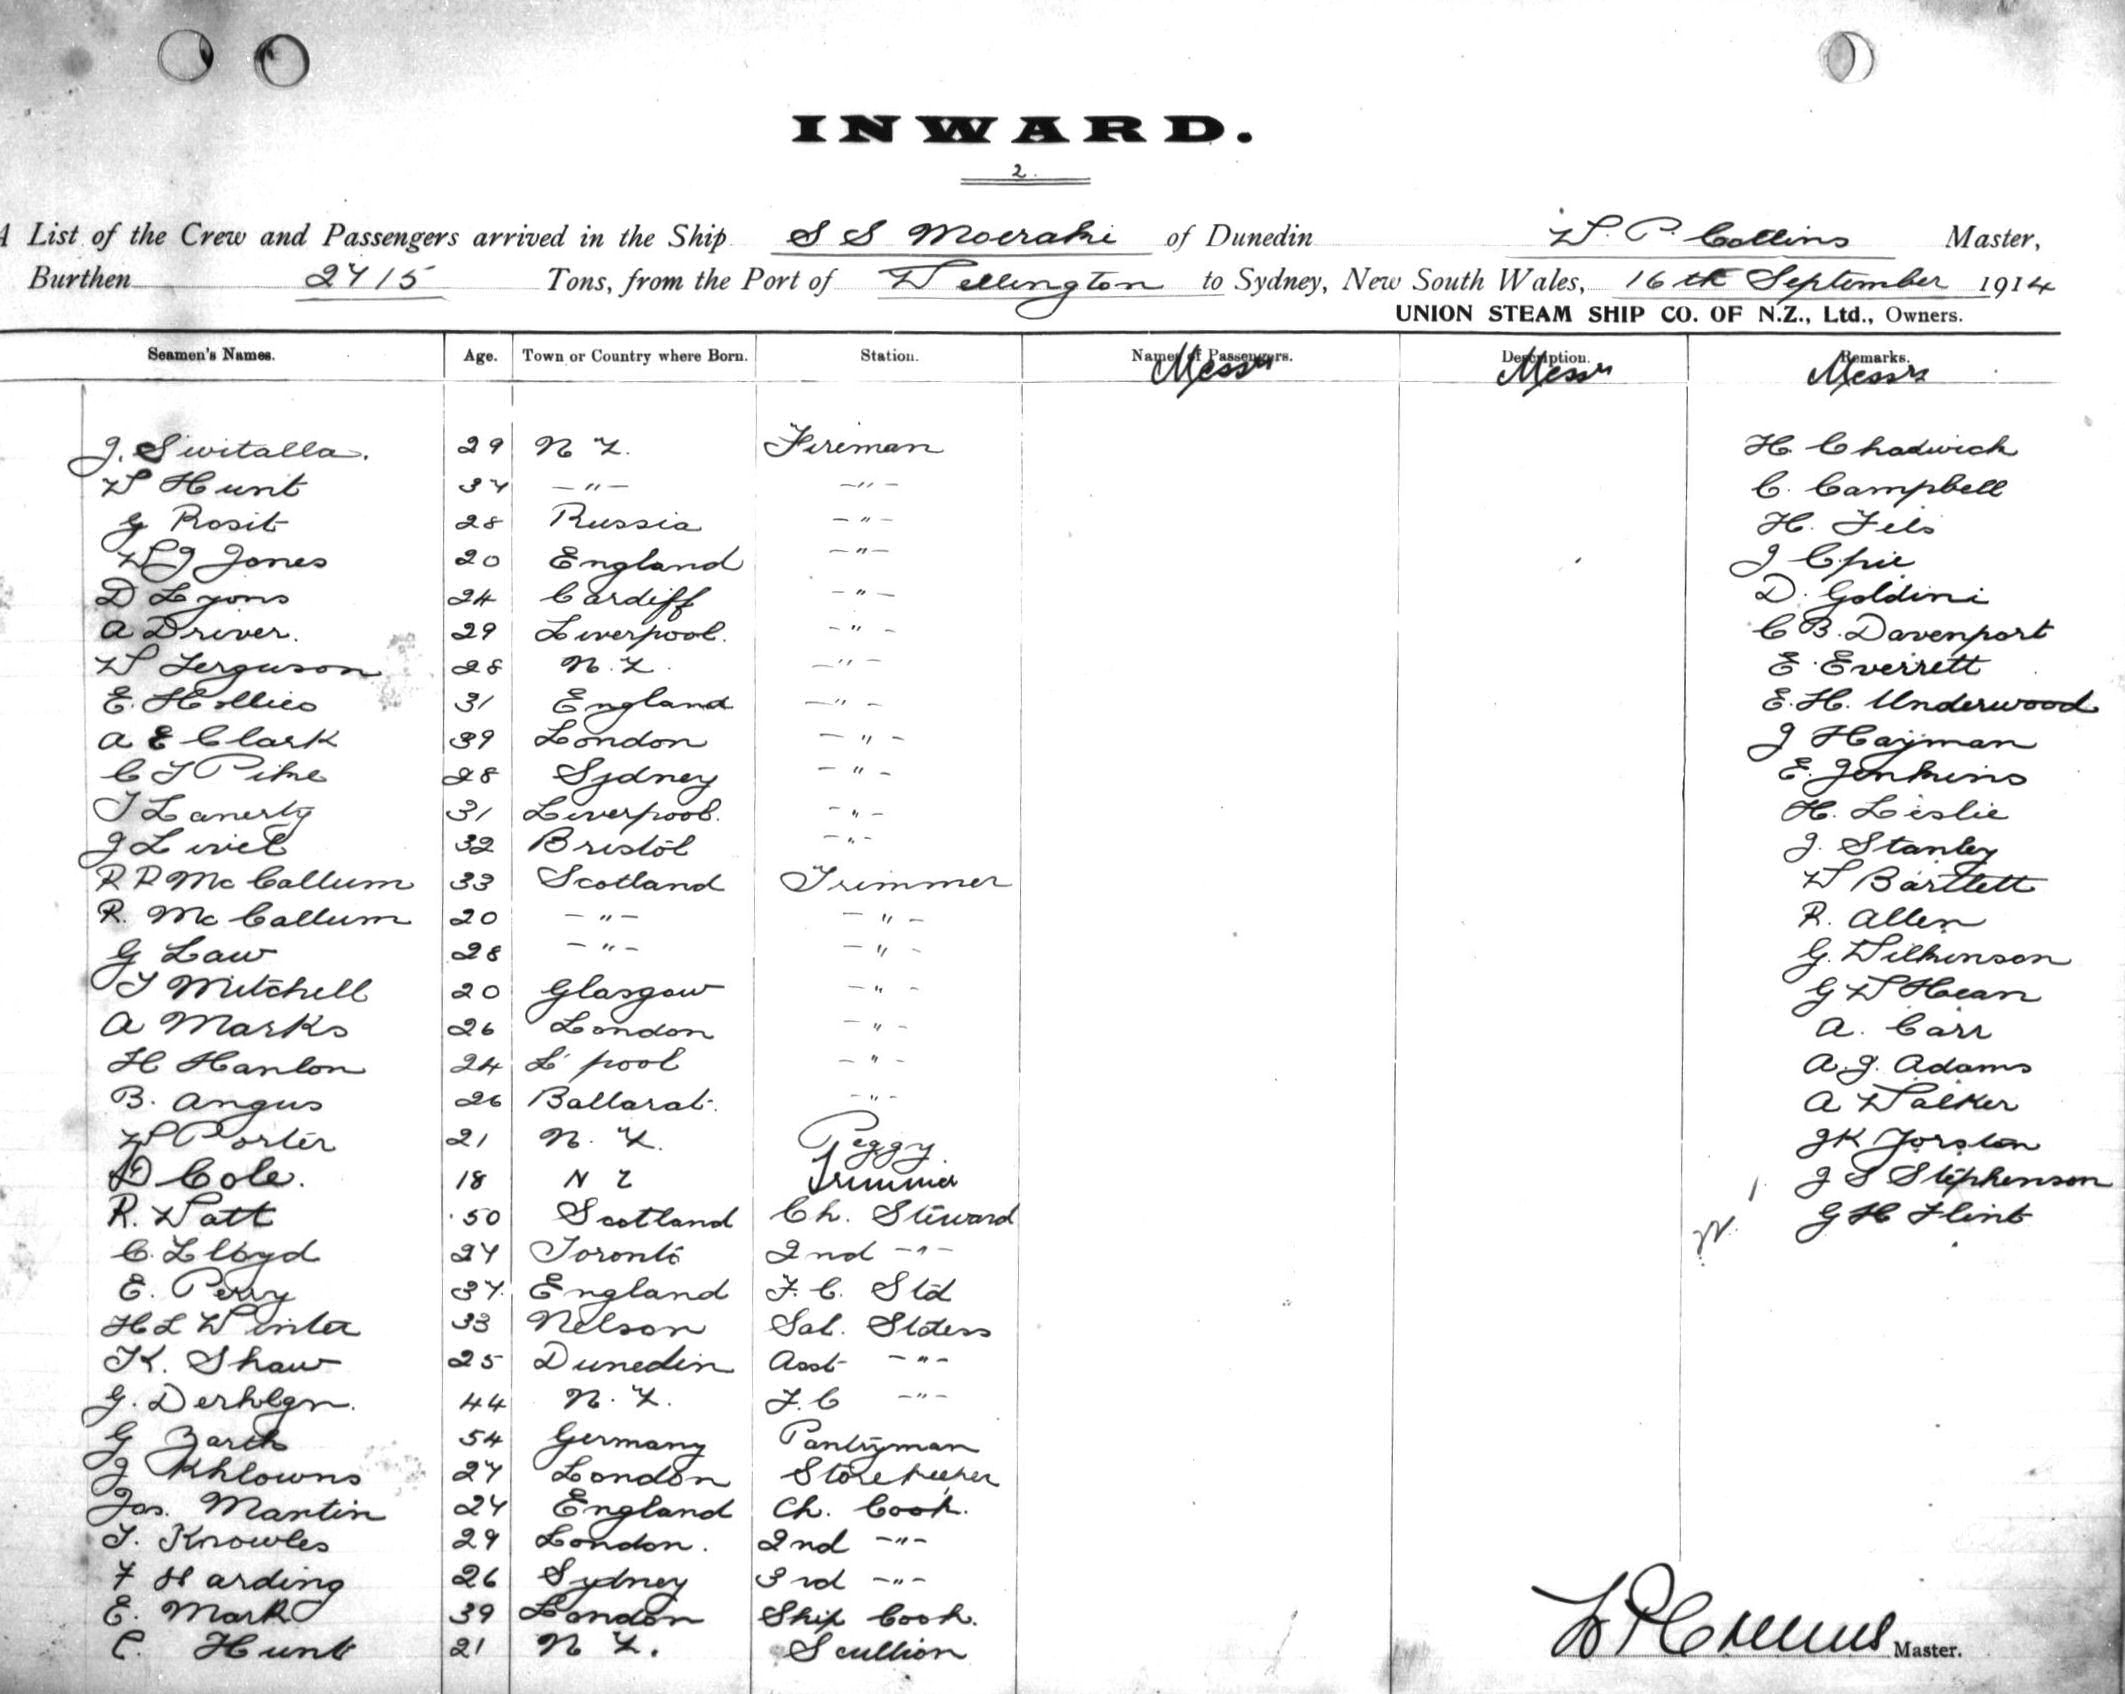 INWARD.
2.
A List of the Crew and Passengers arrived in the Ship S S Moeraki of Dunedin W. P. Collins Master,
Burthen 2715 Tons, from the Port of Wellington to Sydney, New South Wales, 16th September 1914
UNION STEAM SHIP CO. OF N.Z., Ltd., Owners.
Seamen's Names. Age. Town or Country where Born. Station. Names of Passengers. Description. Remarks.
Messrs Messrs Messrs
J. Switalla. 29 N Z. Fireman H. Chadwick
W Hunt 37 -"- -"- C. Campbell
G Rosit 28 Russia -"- H. Fels
W J Jones 20 England -"- J
D Lyons 24 Cardiff -"- D. Goldini
A Driver. 29 Liverpool. -"- C B. Davenport
W Ferguson 28 N. Z. -"- E. Everrett
E. Hollies 31 England -"- E. H. Underwood
A E Clark 39 London -"- J Hayman
C T Pike 28 Sydney -"- E. Jenkins
T Lanerty 31 Liverpool. -"- H. Leslie
J Livet 32 Bristol -"- J. Stanley
R D McCallum 33 Scotland Trimmer W Bartlett
R. McCallum 20 -"- -"- R. Allen
G Law 28 -"- -"- G. Wilkinson
T Mitchell 20 Glasgow -"- G W Hean
A Marks 26 London -"- A. Carr
H Hanlon 24 L'pool -"- A. J. Adams
B. Angus 26 Ballarat. -"- A Walker
W Porter 21 N. Z. Peggy. J K Torston
D Cole. 18 N Z Trimmer J S Stephenson
R. Watt 50 Scotland Ch. Steward G H Flint
C. Lloyd 27 Toronto 2nd -"-
E. Perry 37. England F. C. Std
H L Winter 33 Nelson Sal. Stdess
K. Shaw 25 Dunedin Asst -"-
G. 44 N. Z. F. C -"-
G Barth 54 Germany Pantryman
J Khlowns 27 London Storekeeper
Jas. Martin 27 England Ch. Cook.
T. Knowles 29 London. 2nd -"-
F Harding 26 Sydney 3rd -"-
E. Mark 39 London Ship Cook.
C. Hunt 21 N Z. Scullion
W P Collins Master.